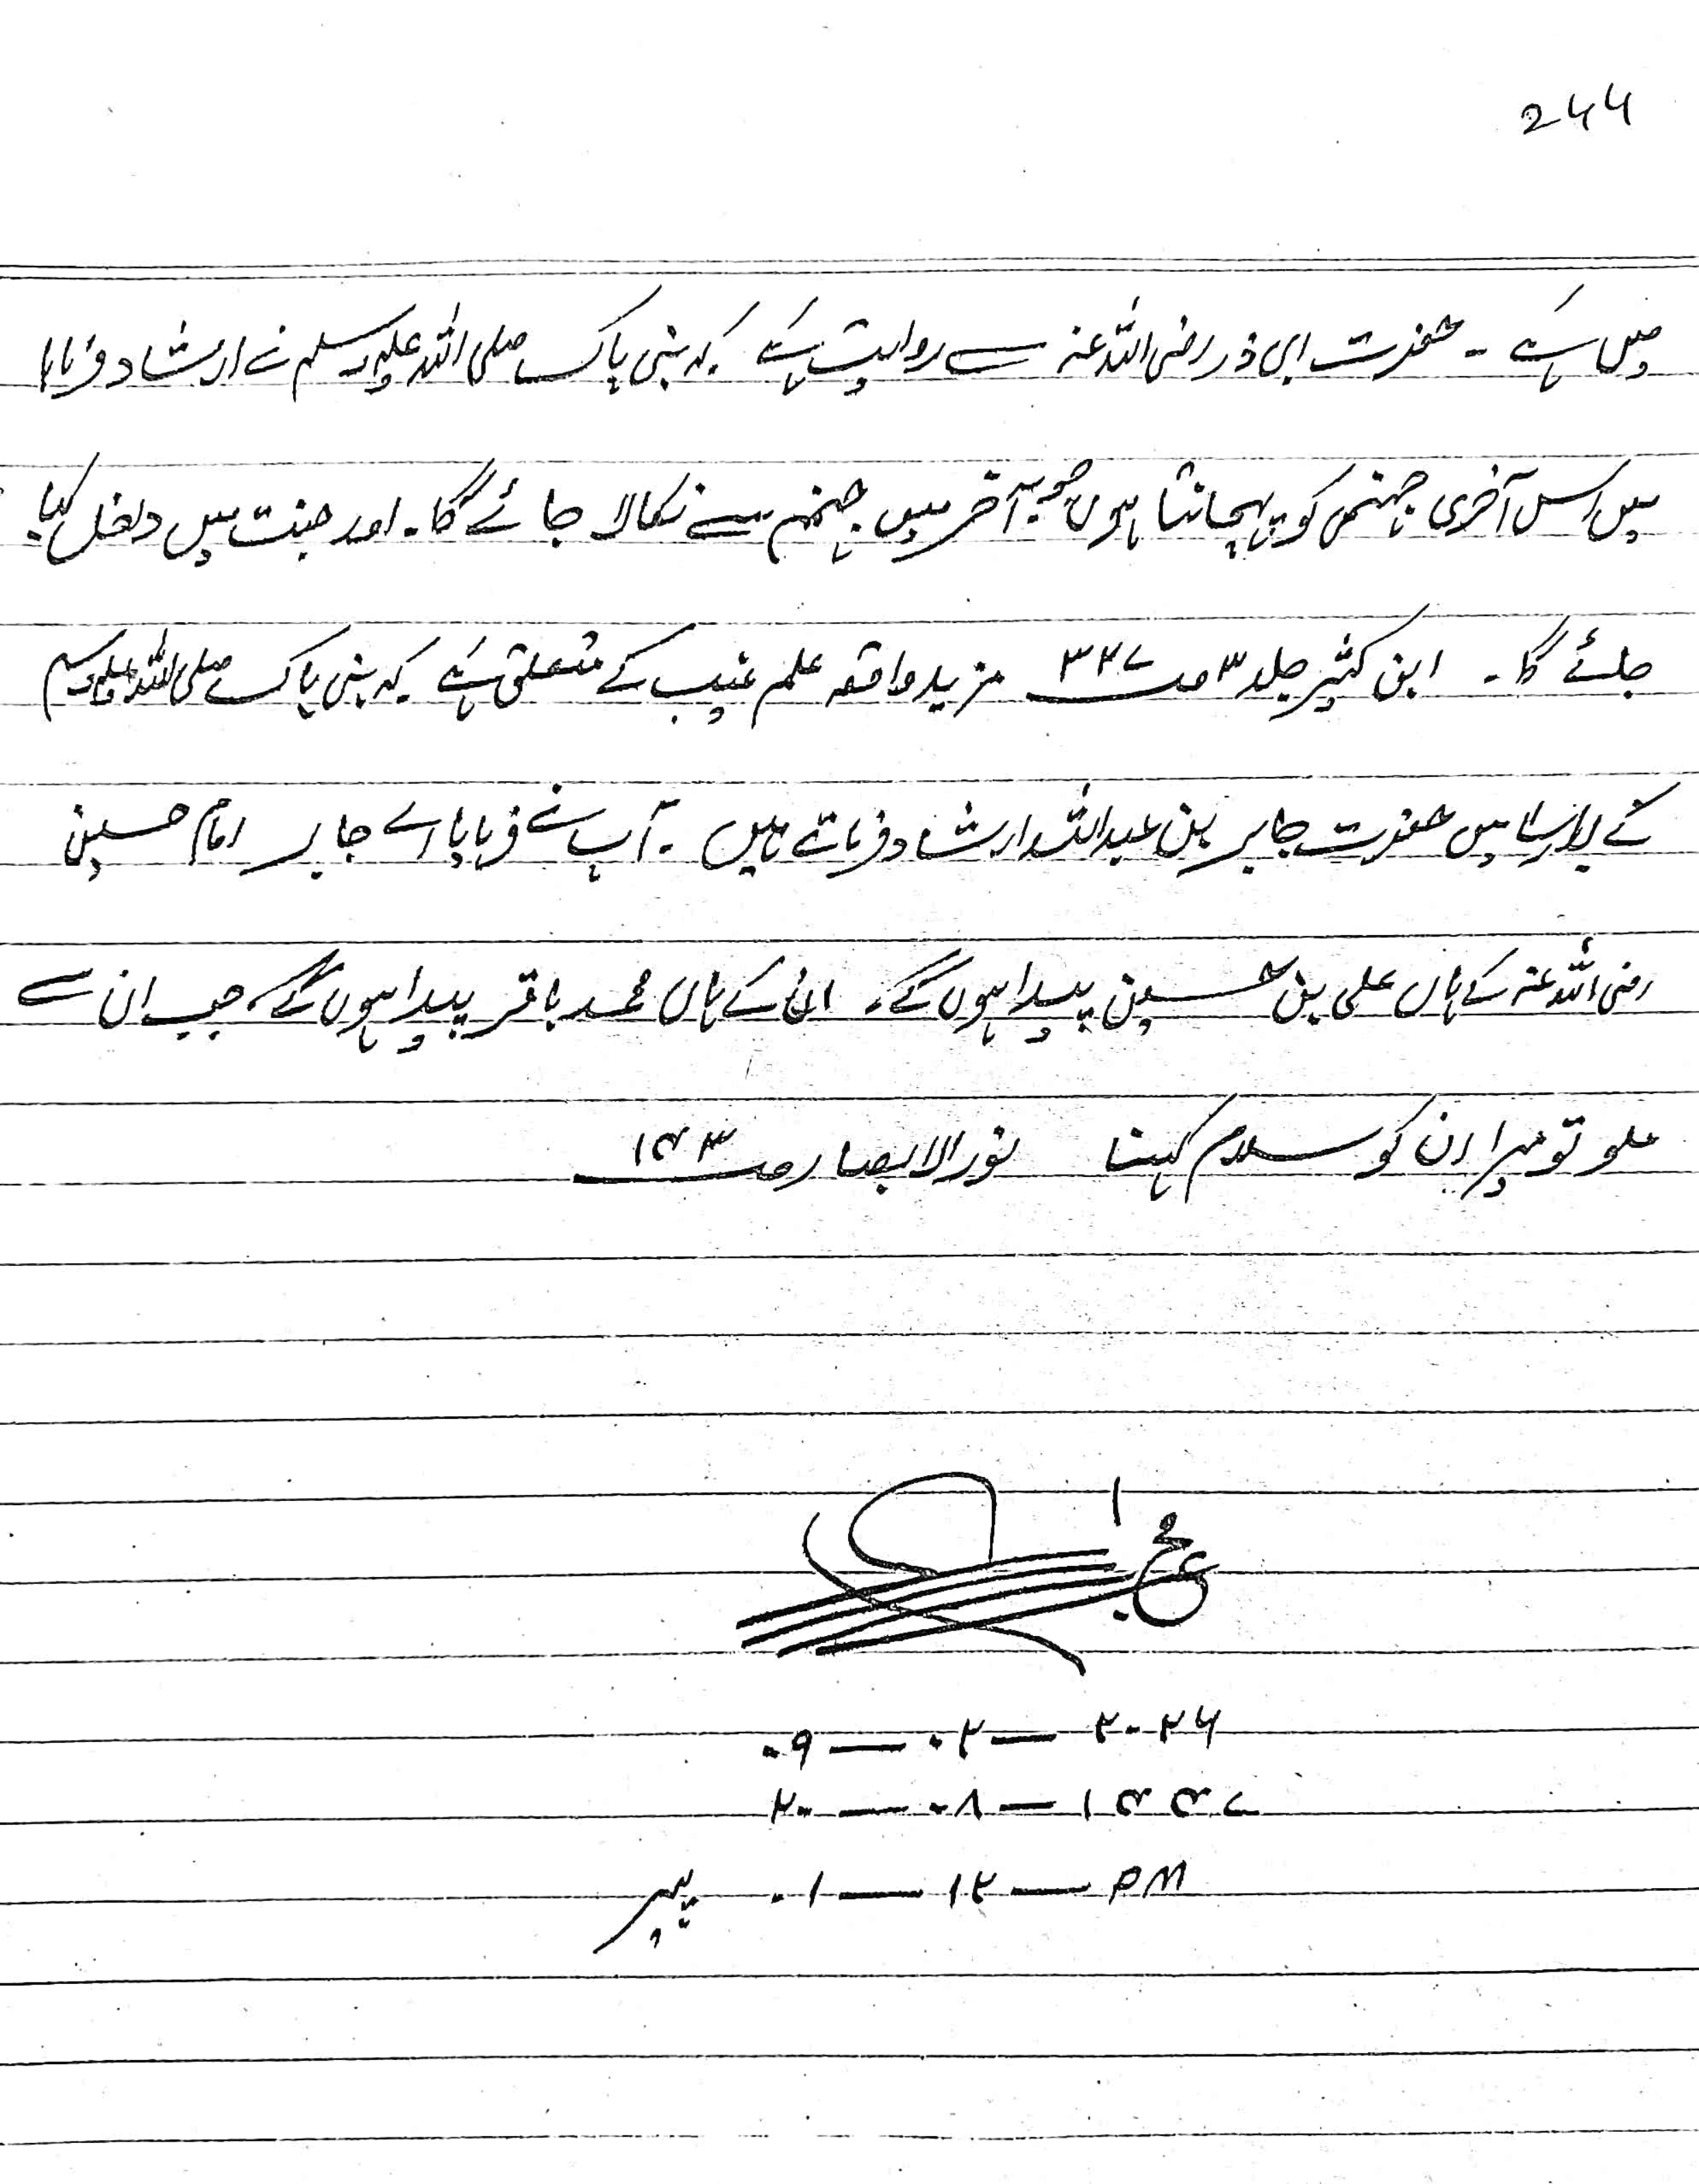 244
میں ہے ۔ حضرت ابی ذر رضی اللہ عنہ سے روایت ہے کہ نبی پاک صلی اللہ علیہ وسلم نے ارشاد فرمایا
میں اس آخری جہنمی کو پہچانتا ہوں جو آخر میں جہنم سے نکالا جائے گا۔ اور جنت میں داخل کیا
جائے گا۔ ابن کثیر جلد ۳ ص ۳۲۷ مزید واقعہ علم غیب کے متعلق ہے کہ نبی پاک صلی اللہ علیہ وسلم
کے بارے میں حضرت جابر بن عبداللہ ارشاد فرماتے ہیں ۔ آپ نے فرمایا اے جابر امام حسین
رضی اللہ عنہ کے ہاں علی بن حسین پیدا ہوں گے۔ ان کے ہاں محمد باقر پیدا ہوں گے، جب ان سے
ملو تو میرا ان کو سلام کہنا نور الابصار ص ۱۴۳
۰۹ — ۰۲ — ۲۰۲۶
۲۰ — ۰۸ — ۱۴۴۷
۰۱ — ۱۲ — PM پیر